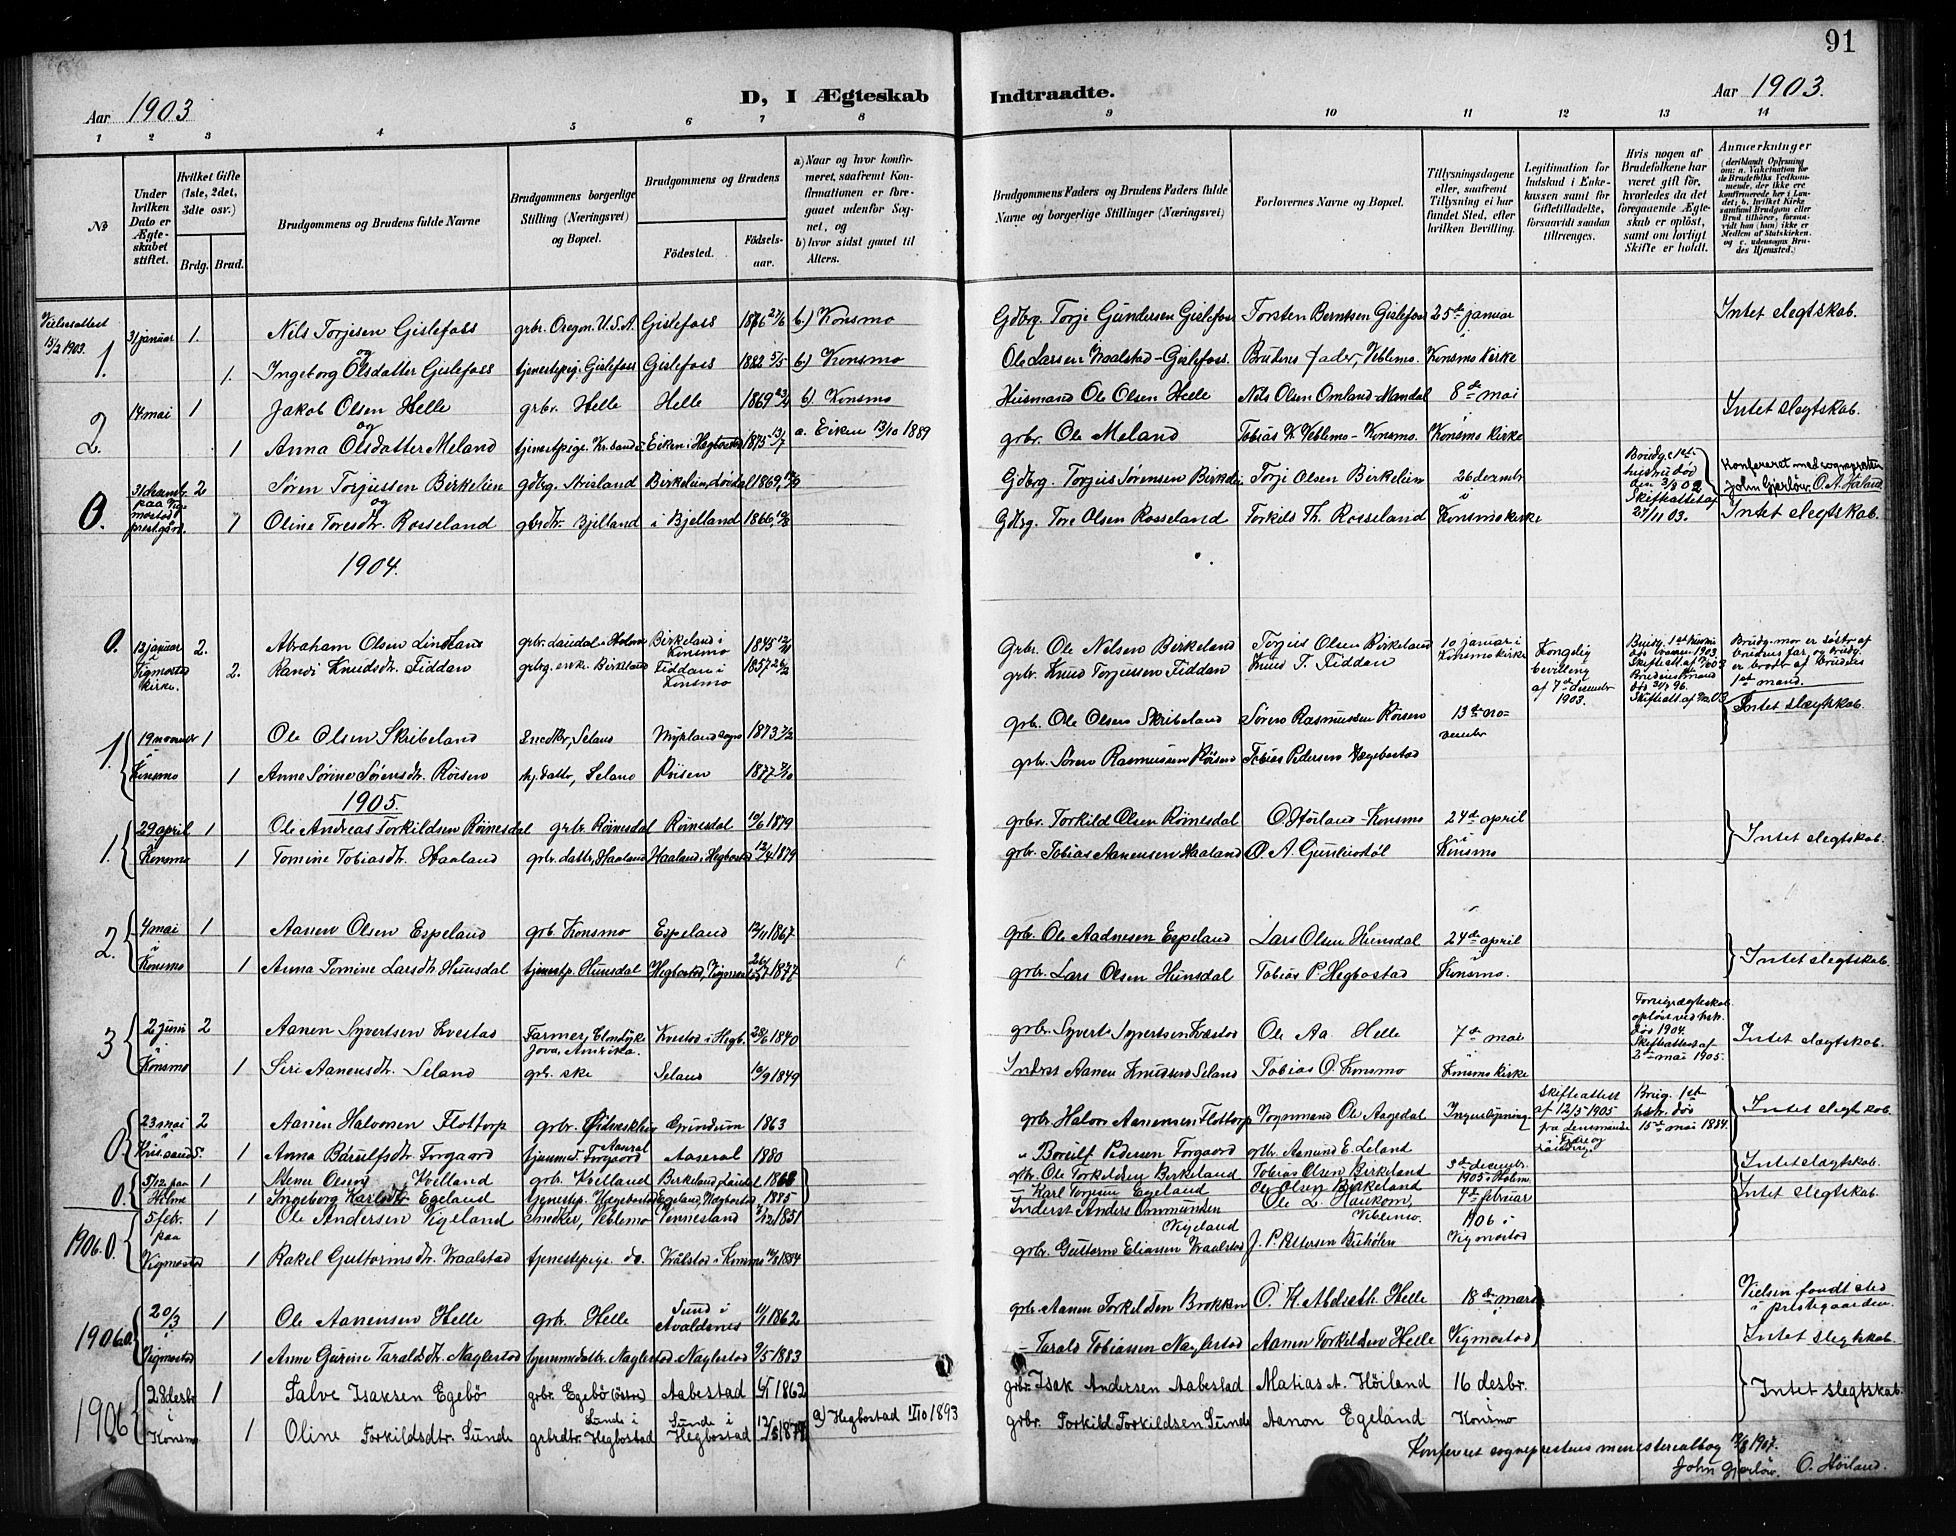 91
Aar 1903
D, I Ægteskab Indtraadte.
Aar 1903.
1 2 3 4 5 6 7 8 9 10 11 12 13 14
No
Under hvilken Dato er Ægteskabet stiftet.
Hvilket Gifte (1ste, 2det, 3dte osv.)
Brdg. Brud.
Brudgommens og Brudens fulde Navne
Brudgommens borgerlige Stilling (Næringsvei) og Bopæl.
Brudgommens og Brudens
Födested. Födselsaar.
a) Naar og hvor konfirmeret, saafremt Konfirmationen er foregaaet udenfor Sognet, og
b) hvor sidst gaaet til Alters.
Brudgommens Faders og Brudens Faders fulde Navne og borgerlige Stillinger (Næringsvei)
Forlovernes Navne og Bopæl.
Tillysningsdagene eller, saafremt Tillysning ei har fundet Sted, efter hvilken Bevilling.
Legitimation for Indskud i Enkekassen samt for Giftetilladelse, forsaavidt saadan tiltrænges.
Hvis nogen af Brudefolkene har været gift før, hvorledes da det foregaaende Ægteskab er opløst, samt om lovligt Skifte er holdt.
Anmerkninger
(deriblandt Oplysning om: a. Vakcination for de Brudefolks Vedkommende, der ikke ere konfirmerede her i Landet; b. hvilket Kirkesamfund Brudgom eller Brud tilhörer, forsaavidt han (hun) ikke er Medlem af Statskirken, og c. udensogns Brudes Hjemsted.)
Vielsesattest 13/2 1903.
1. 31 januar 1. Nels Torjesen Gislefoss grbr. Oregon U.S.A. Gislefoss 1876 27/6 b.) Konsmo Gdbrg. Torje Gundersen Gislefoss Torsten Berntsen Gislefoss 25de januar Intet slegtskab.
og
1. Ingeborg Olsdatter Gislefoss tjenestepig. Gislefoss Gislefoss 1882 3/5 b.) Konsmo Ole Larsen Vraalstad-Gislefoss. Brudens fader, Veblemo. Konsmo Kirke
2. 14 mai 1 Jakob Olsen Helle grbr. Helle Helle 1869 23/4 b.) Konsmo Husmand Ole Olsen Helle Nils Olsen Omland-Mandal 8de mai Intet slegtskab.
og
1 Anna Olsdatter Meland tjenestpige. Kr.sand Eiken i Hegbostad 1875 13/7 a. Eiken 13/10 1889 grbr. Ole Meland Tobias K. Veblemo-Konsmo. i Konsmo kirke
0. 31 desembr. paa Vigmostad prestgård. 2 Søren Torjussen Birkelien gdbrg. Birkelien, Løidal 1869 Gdbrg. Torjus Sørensen Birkelien Torje Olsen Birkelien 26 desembr. Brudg. 1ste hustru død Skifteattest af 27/11 03. Konfereret med sognepresten John Gjerløw. O. A. Høiland.
og
1 Oline Toresdtr. Rosseland gbrdtr. Bjelland i Bjelland 1866 Gdbrg. Tore Olsen Rosseland Torkild Th. Rosseland i Konsmo kirke Intet slegtskab.
1904.
0. 13 januar Vigmostad kirke. 2. Abraham Olsen Lindland grbr. Laudal i Holme Birkeland i Konsmo 1845 Grbr. Ole Nilsen Birkeland Torjus Olsen Birkeland 10 januar i Konsmo kirke Kongelig bevilling af 7de desember 1903. Brudg. mor er søster af brudens far, og brudg. er broder af brudens 1ste mand.
2. Randi Knudsdtr. Fiddan grbrg. enke Birkeland Fiddan i Konsmo 1857 grbr. Knud Torjussen Fiddan Knud T. Fiddan
1. 19 novembr i Konsmo 1 Ole Olsen Skribeland Snedker, Seland Mykland sogn 1873 grb. Ole Olsen Skribeland Søren Rasmussen Røisen 13de november Intet slægtskab.
1 Anne Sørine Sørensdtr. Røisen Seland Røisen 1877 grbr. Søren Rasmussen Røisen Tobias Pedersen Hægebostad
1905.
1. 29 april i Konsmo 1 Ole Andreas Torkildsen Røinesdal grbr Røinesdal Røinesdal 1879 grbr. Torkild Olsen Røinesdal O. Høiland-Konsmo 24de april Intet slegtskab.
1 Tomine Tobiasdtr. Haaland grbr. dattr, Haaland Haaland i Hegbostad 12/4 1879 grbr. Tobias Aanensen Haaland O. A. Gunleiksløl i Konsmo
2. 4 mai i Konsmo 1 Aanen Olsen Espeland grb. Konsmo Espeland 13/11 1867 grb. Ole Aadnesen Espeland Lars Olsen Hunsdal 24de april
1 Anna Tomine Larsdtr. Hunsdal tjenestp. Hunsdal Hegbostad, Vigmostad 1877 grb. Lars Olsen Hunsdal Tobias P. Hegbostad Konsmo. Intet slegtskab.
3 2 juni i Konsmo 2 Aanen Syvertsen Kvestad Farmer, Jova, Amerika. Kvestad i Hegb. 28/6 1840 grbr. Syvert Syvertsen Kvestad Ole Aa Helle 7de mai Forrige ægteskab opløst ved hst. død 1904. Skifteattest af 2den mai 1905. Intet slægtskab.
1 Siri Aanensdtr. Seland grb. ske Seland 13/9 1849 Inderst Aanen Knudsen Seland Tobias O. Konsmo i Konsmo kirke
0. 23 mai i Kristiansand S. 2 Aanen Halvorsen Flottorp grbr. Grindum 1863 grbr Halvor Aanensen Flottorp Sognmand Ole Aagedal Ingen lysning Skifteattest af 12/5 1905 fra Lensmanden Brudg. 1ste hstr. død 15de mai 1884. Intet slegtskab.
1 Anna Børulfsdtr. Torgaard tjenermd. Torgaard Aaseral Aaseral 1880 " Børulf Pedersen Torgaard grbr. Aanund E. Leland
0. 5/12 paa Holme 1 Stener Olsen Kvelland grb. Kvelland Birkeland, Laudal 1868 grbr. Ole Torkildsen Birkeland Tobias Olsen Birkeland 3de desembr. 1905 i Holm. Intet slegtskab.
1 Ingeborg Karlsdtr Egeland tjenestep. Hægebostad Egeland, Hægbostad 1885 - Karl Torjusen Egeland Ole Olsen Birkeland
1906. 0. 5 febr. paa Vigmostad 1 Ole Andersen Vigeland Smeker, Veblemo Vennesland 1851 Inderst Anders Ommundsen Vigeland Ole L. Haukom, Veblemo. 4de februar 1906 i Vigmostad Intet slegtskab.
1 Rakel Guttormsdtr. Vraalstad tjenestepige. do. Vrålstad i Konsmo 1884 grbr. Guttorm Eliassen Vraalstad J. P. Pettersen Buhølen
1906 0. 20/3 i Vigmostad 1 Ole Aanensen Helle grb. Helle Sund i Avaldsnes 1862 grb. Aanen Torkildsen Brokken O. K. Abelseth. Helle 18de mars Vielsen fandt sted i prestegaarden.
1 Anne Gurine Taraldsdtr. Naglestad Naglestad Naglestad 1883 - Tarald Tobiassen Naglestad Aanen Torkildsen Helle i Vigmostad Intet slegtskab.
1906 28 desbr. i Konsmo 1 Salve Isaksen Egebö grbr. Egebö (östre) Aabestad 1862 grbr. Isak Andersen Aabestad Matias A. Höiland 16 desbr. Intet slegtskab.
1 Oline Torkildsdtr. Sunde grbrdtr. Sunde i Hegbostad Sunde i Hegbostad 1877 a) Hegbostad 1/10 1893 grbr. Torkild Torkildsen Sunde Aanon Egeland i Konsmo
Konfereret sogneprestens ministerialbog 1907.
John Gjerløw. O. Høiland.